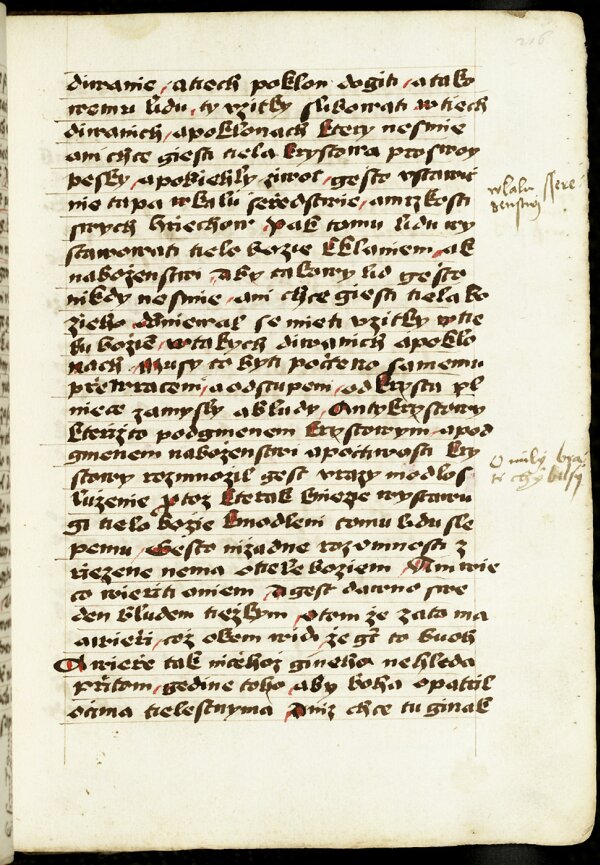 216
diwanie, a tiech poklon dogiti, a tako
wemu lidu, ty vzitky slibowati w tiech
diwanich, a poklonach ktery nesmie
ani chce giesti tiela krystowa pro swoy
a pobiehly ziwot, gesto vstawi
nie tapa w kalu smrdutosti
swych hriechow Pak tomu lidu wy
stawowati tielo bozie k klaniem, a k
nabozenstwi Aby takowy lid gesto
nikdy nesmie, ani chce giesti tiela bo
zieho domniewal se mieti vzitky w tie
lu bozie, w takych diwanich a poklo
nach, Musy to byti pocteno samemu
prewraceni, a odstupeni, od krysta pl
niece zamysly a bludy, Antykrystowy
kterizto pod gmenem krystowym, a pod
gmenem nabozenstwi a pocztiwosti kry
stowy rozmnozil gest vrazy modlos
luzenie Protoz kterak knieze wystawu
gi tielo bozie k modleni tomu lidu sle
pemu, Gesto nizadne rozomnosti z
rziezene nema o tiele boziem Ani wie
co wieriti o niem A gest dawno swe
den bludem tiezkym, o tom ze za to ma
a wieri, coz okem widi ze gest to buoh
A wierze tak niczehoz gineho nehleda
pritom, gedine toho, aby boha opatril
ocima tielestnyma Aniz chce tu ginak
w kalu
O mily bra